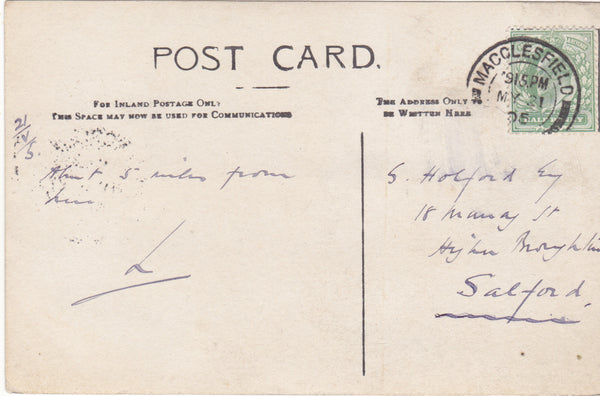 POST CARD.
FOR INLAND POSTAGE ONLY
THIS SPACE MAY NOW BE USED FOR COMMUNICATIONS
THE ADDRESS ONLY TO
BE WRITTEN HERE
MACCLESFIELD
915 PM
MY 21
05
HALFPENNY
21/V/5
About 5 miles from
here
L
S. Holford Esq
18 St
Higher Broughton
Salford